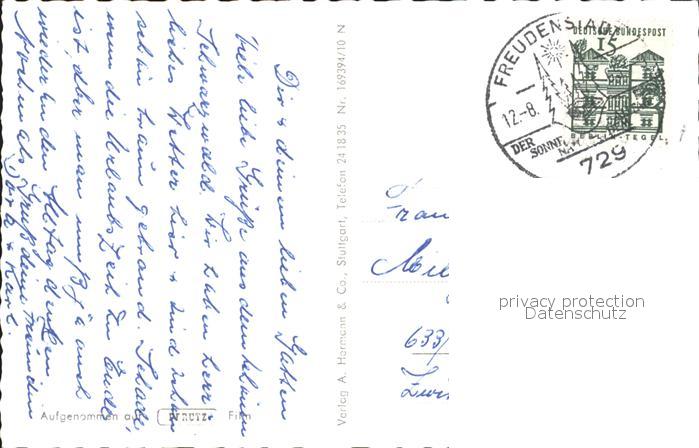 Dir & deinem lieben Gatten
viele liebe Grüße aus dem kleinen
Schwarzwald. Wir haben herr-
liches Wetter hier & sind schon
schön braun gebrand. Schade,
wenn die Urlaubszeit zu Ende
ist, aber man muß ja auch
wieder an den Alltag denken
Nochmals Gruß deine Freundin
& Karl.
Aufgenommen auf PERUTZ Film
Verlag A. Hermann & Co., Stuttgart, Telefon 24 18 35 Nr. 169394/10 N
FREUDENSTADT
12.-8.
DER SONNE
729
DEUTSCHE BUNDESPOST
15
BERLIN-TEGEL
Frau
633
privacy protection
Datenschutz